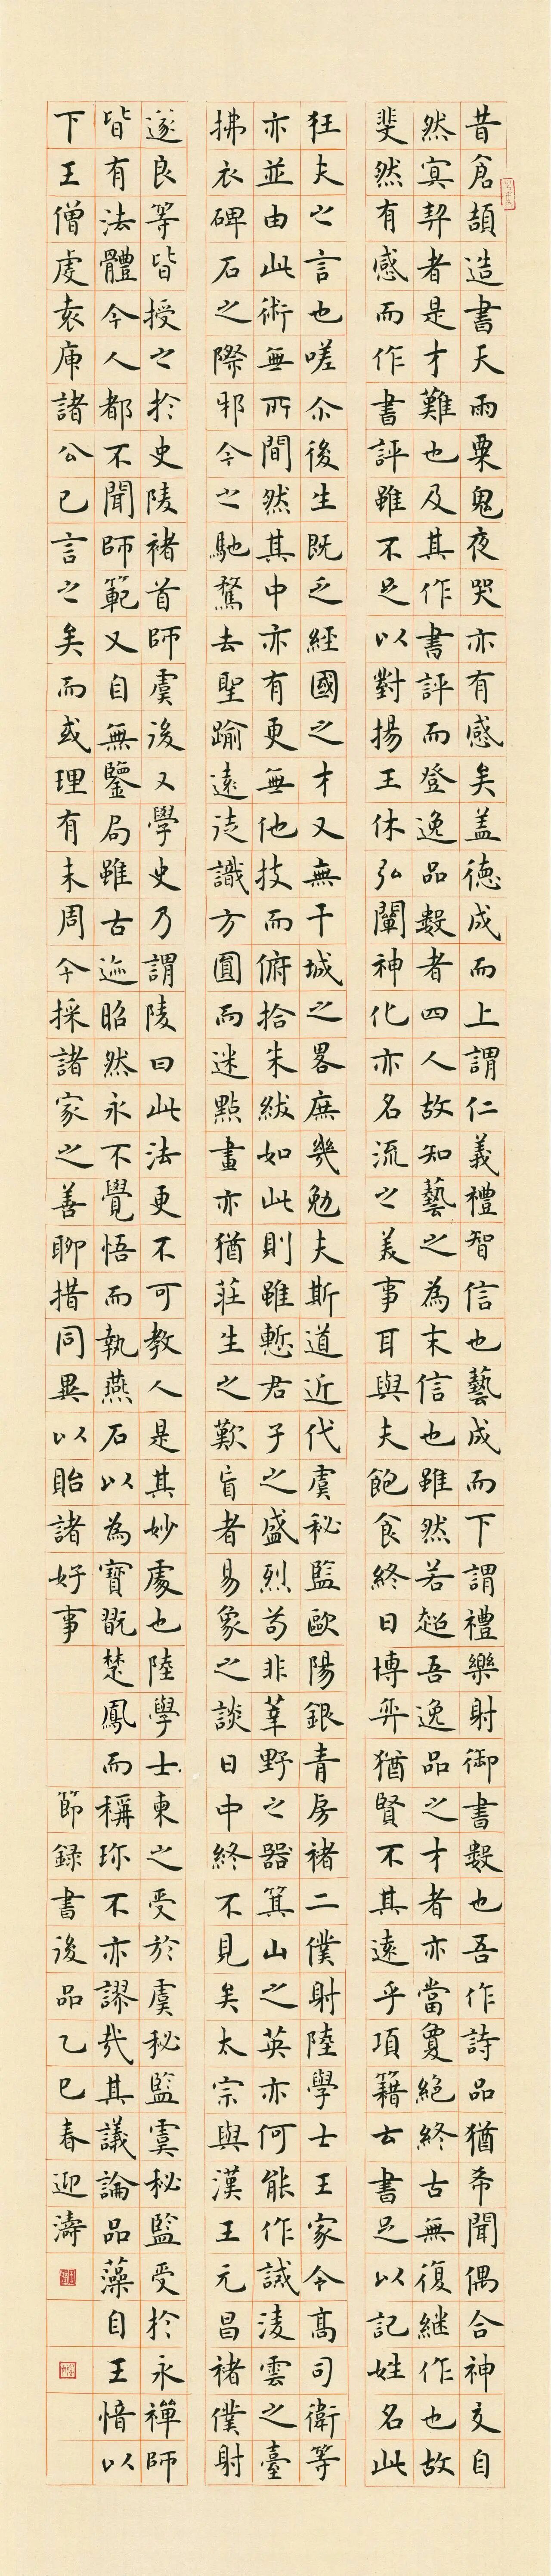 昔倉頡造書天雨粟鬼夜哭亦有感矣盖德成而上謂仁義禮智信也藝成而下謂禮樂射御書數也吾作詩品猶希聞偶合神交自
然冥契者是才難也及其作書評而登逸品數者四人故知藝之為末信也雖然若超吾逸品之才者亦當敻絕終古無復継作也故
斐然有感而作書評雖不足以對揚王休弘闡神化亦名流之美事耳與夫飽食終日博弈猶賢不其遠乎項籍云書足以記姓名此
狂夫之言也嗟尒後生既乏經國之才又無干城之畧庶幾勉夫斯道近代虞秘監歐陽銀青房褚二僕射陸學士王家令高司衛等
亦並由此術無所間然其中亦有更無他技而俯拾朱紱如此則雖慙君子之盛烈苟非莘野之器箕山之英亦何能作誡淩雲之臺
拂衣碑石之際邪今之馳騖去聖踰遠徒識方圓而迷點畫亦猶莊生之歎盲者易象之談日中終不見矣太宗與漢王元昌褚僕射
遂良等皆授之於史陵褚首師虞後又學史乃謂陵曰此法更不可教人是其妙處也陸學士柬之受於虞秘監虞秘監受於永禪師
皆有法體今人都不聞師範又自無鑒局雖古迹昭然永不覺悟而執燕石以為寶翫楚鳳而稱珎不亦謬㢤其議論品藻自王愔以
下王僧虔袁庾諸公已言之矣而或理有未周今採諸家之善聊措同異以貽諸好事
節録書後品乙巳春迎濤